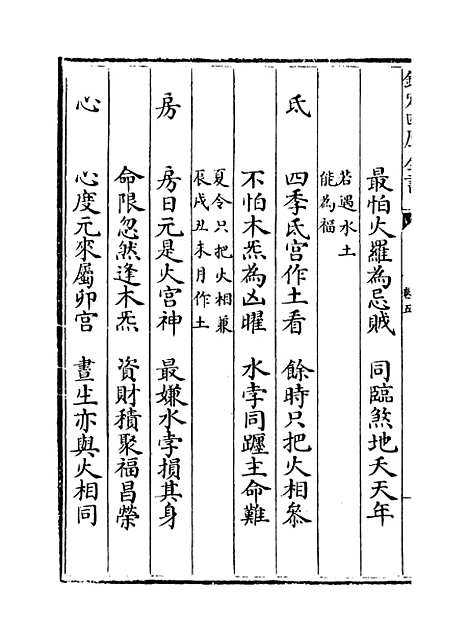 欽定四庫全書
卷五
最怕火羅為忌賊　同臨煞地夭天年
若遇水土
能為福
氐　四季氐宮作土看　餘時只把火相參
不怕木炁為凶曜　水孛同躔主命難
夏令只把火相兼
辰戌丑未月作土
房　房日元是火宮神　最嫌水孛損其身
命限忽然逢木炁　資財積聚福昌榮
心　心度元來屬卯宮　晝生亦與火相同